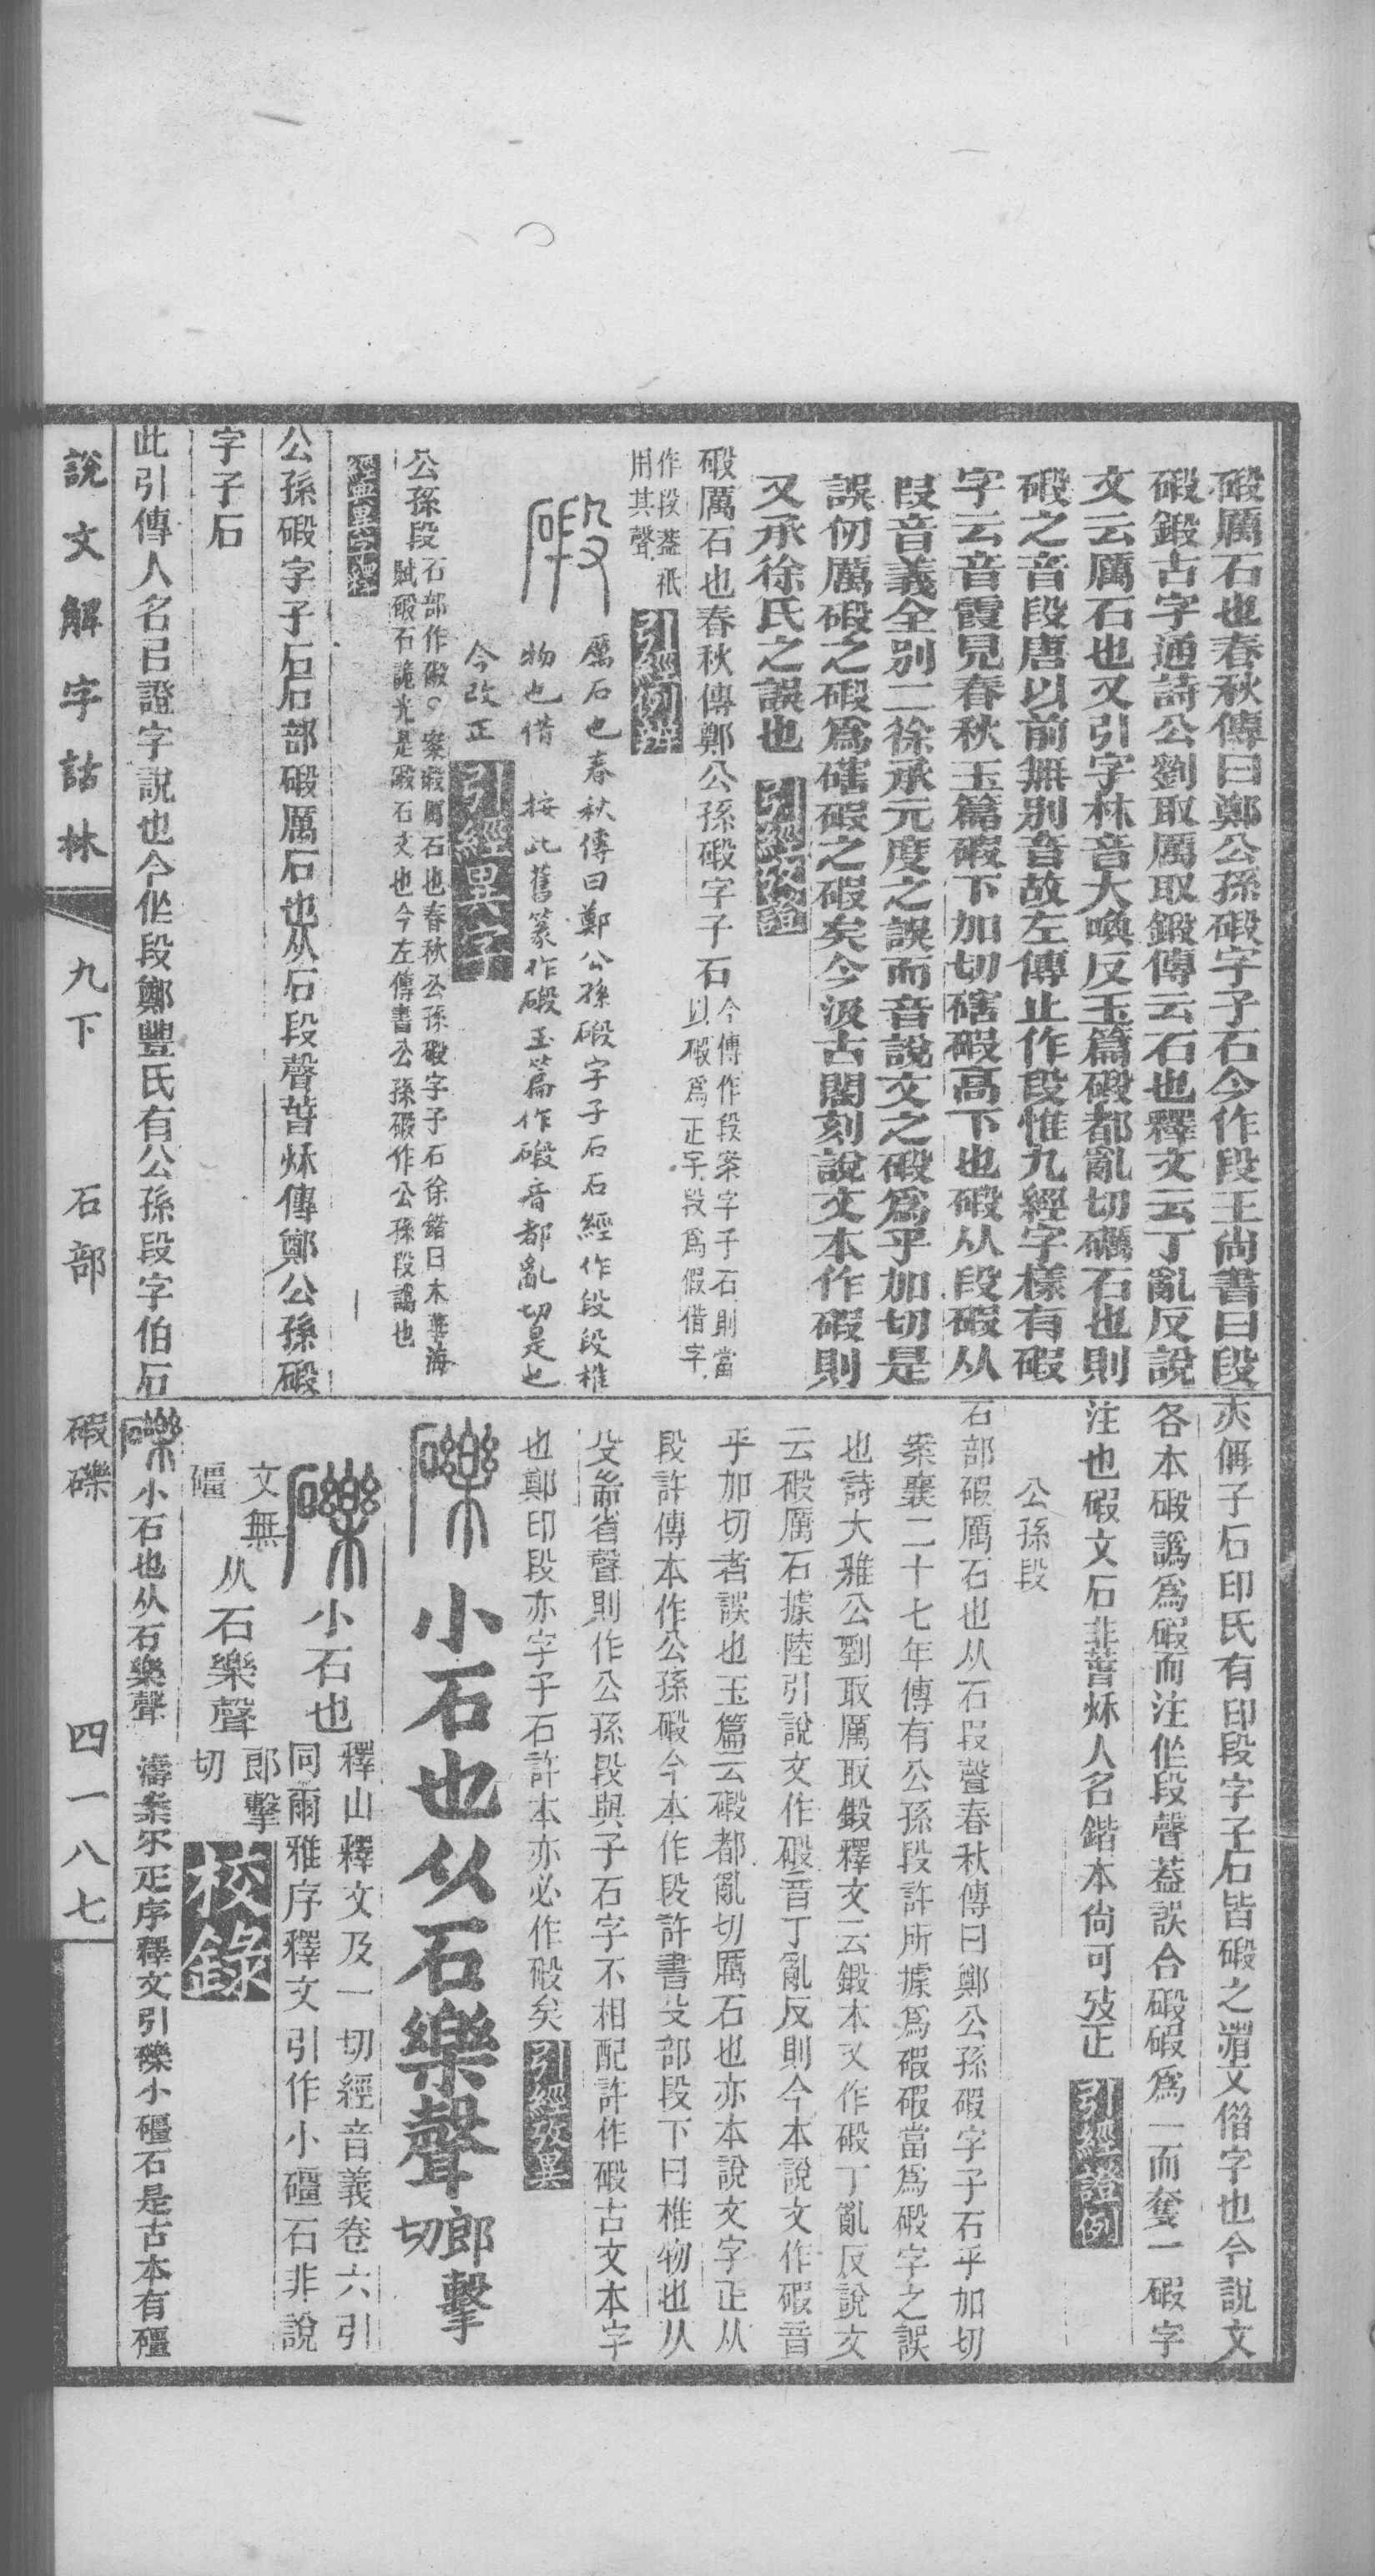 碫厲石也春秋傳曰鄭公孫碫字子石今作段王尚書曰段
碫鍛古字通詩公劉取厲取鍛傳云石也釋文云丁亂反說
文云厲石也又引字林音大喚反玉篇碫都亂切礪石也則
碫之音段唐以前無別音故左傳止作段惟九經字樣有碬
字云音霞見春秋玉篇碬下加切磍碬高下也碫从段碬从
叚音義全別二徐承元度之誤而音說文之碫爲乎加切是
誤仞厲碫之碫爲磍碬之碬矣今汲古閣刻說文本作碬則
又承徐氏之誤也
引經攷證
碫厲石也春秋傳鄭公孫碫字子石
今傳作段案字子石則當
以碫爲正字段爲假借字
作段葢祇
用其聲
引經例辨
厲石也春秋傳曰鄭公孫碫字子石石經作段段椎
物也借
按此舊篆作碬玉篇作碫音都亂切是也
今改正
引經異字
公孫段
石部作碫案碬厲石也春秋公孫碬字子石徐鍇曰木華海
賦碬石詭光是碬石文也今左傳書公孫碬作公孫段譌也
公孫碫字子石石部碫厲石也从石段聲䓪秌傳鄭公孫碫
字子石
此引傳人名㠯證字說也今㑅段鄭豐氏有公孫段字伯石
亦偁子石印氏有印段字子石皆碫之渻文偺字也今說文
各本碫譌爲碬而注㑅段聲葢誤合碫碬爲一而奪一碬字
注也碬文石非䓪秌人名鍇本尙可攷正
引經證例
公孫段
石部碬厲石也从石叚聲春秋傳曰鄭公孫碬字子石乎加切
案襄二十七年傳有公孫段許所據爲碬碬當爲碫字之誤
也詩大雅公劉取厲取鍛釋文云鍛本又作碫丁亂反說文
云碫厲石據陸引說文作碫音丁亂反則今本說文作碬音
乎加切者誤也玉篇云碫都亂切厲石也亦本說文字正从
段許傳本作公孫碫今本作段許書殳部段下曰椎物也从
殳耑省聲則作公孫段與子石字不相配許作碫古文本字
也鄭印段亦字子石許本亦必作碫矣
引經攷異
小石也从石樂聲
郎擊
切
小石也
釋山釋文及一切經音義卷六引
同爾雅序釋文引作小礓石非說
文無
礓
从石樂聲
郎擊
切
校錄
小石也从石樂聲
濤案尒疋序釋文引礫小礓石是古本有礓
說文解字詁林
九下
石部
碬礫
四一八七